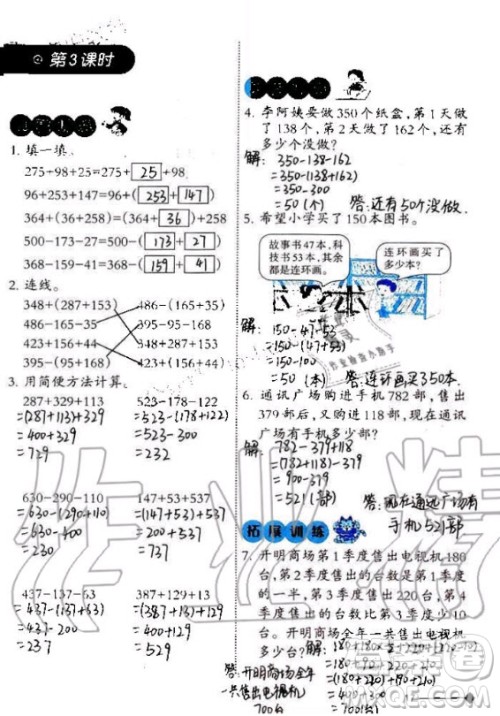 第3课时
1. 填一填。
275+98+25=275+25+98
96+253+147=96+(253+147)
364+(36+258)=(364+36)+258
500-173-27=500-(173+27)
368-159-41=368-(159+41)
2. 连线。
348+(287+153) 486-(165+35)
486-165-35 395-95-168
423+156+44 348+287+153
395-(95+168) 423+(156+44)
3. 用简便方法计算。
287+329+113 523-178-122
=(287+113)+329 =523-(178+122)
=400+329 =523-300
=729 =223
630-290-110 147+53+537
=630-(290+110) =(147+53)+537
=630-400 =200+537
=230 =737
437-137-53 387+129+13
=437-(137+53)
=237
4. 李阿姨要做350个纸盒，第1天做
了138个，第2天做了162个，还有
多少个没做？
解：350-138-162
=350-(138+162)
=350-300
=50(个) 答：还有50个没做.
5. 希望小学买了150本图书。
故事书47本，科
技书53本，其余
都是连环画。
连环画买了
多少本？
解：
150-47-53
=150-(47+53)
=150-100
=50(本) 答：连环画买了50本.
6. 通讯广场购进手机782部，售出
379部后，又购进118部，现在通讯
广场有手机多少部？
解：782-379+118
=(782+118)-379
=900-379
=521(部) 答：现在通讯广场有
手机521部
拓展训练
7. 开明商场第1季度售出电视机180
台，第2季度售出的台数是第1季度
的一半，第3季度售出220台，第4季
度售出的台数比第3季度少10
台。开明商场全年一共售出电视机
多少台？
答：开明商场全年
一共售出电视机
700台
=700(台)